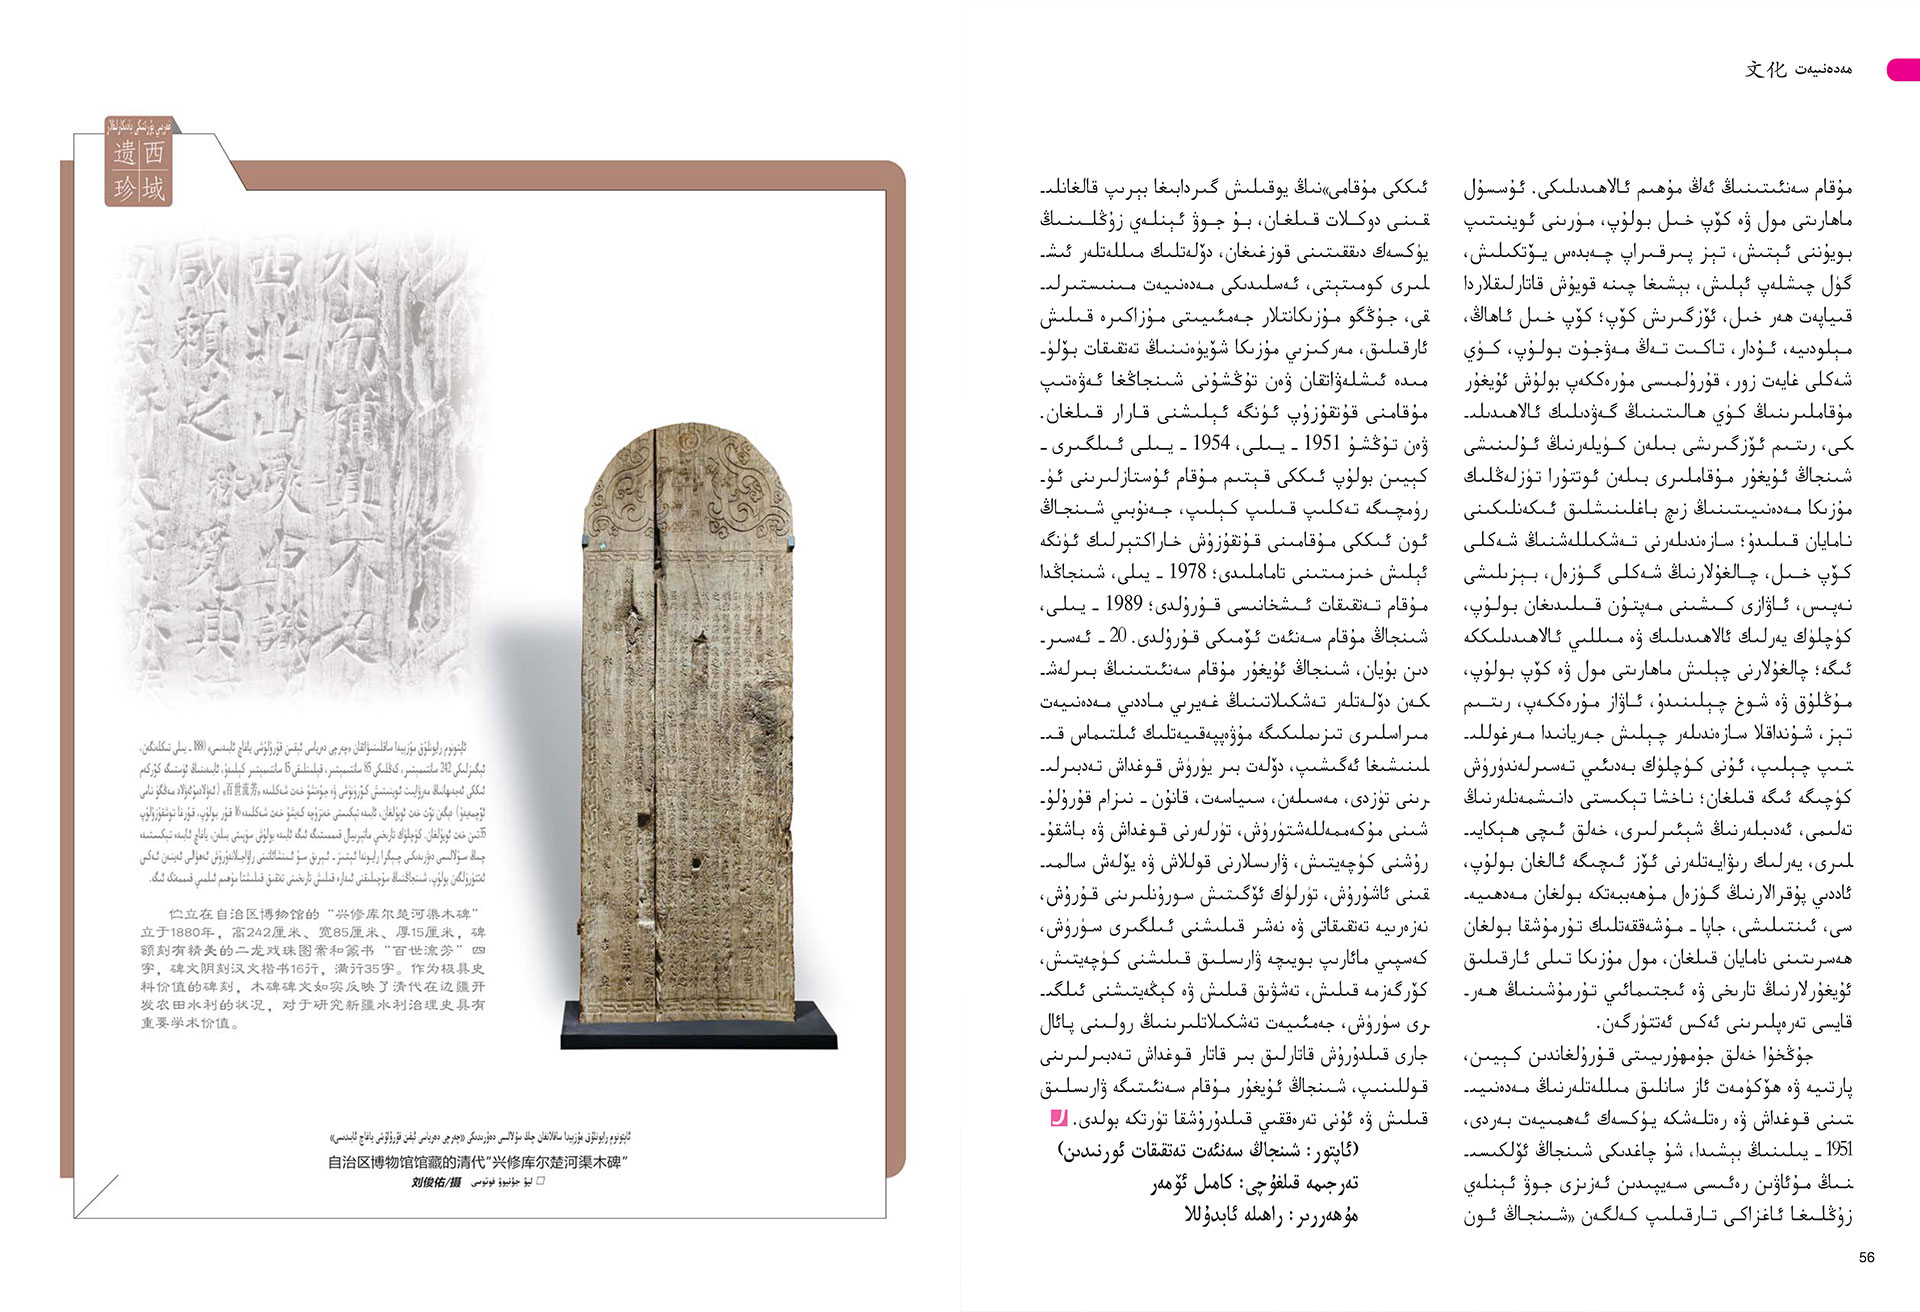 مەدەنىيەت 文化
مۇقام سەنئىتىنىڭ ئەڭ مۇھىم ئالاھىدىلىكى. ئۇسسۇل
ماھارىتى مول ۋە كۆپ خىل بولۇپ، مۈرىنى ئوينىتىپ
بويۇننى ئېتىش، تېز پىرقىراپ چەبدەس يۆتكىلىش،
گۈل چىشلەپ ئېلىش، بېشىغا چىنە قويۇش قاتارلىقلاردا
قىياپەت ھەر خىل، ئۆزگىرىش كۆپ؛ كۆپ خىل ئاھاڭ،
مېلودىيە، ئۇدار، تاكىت تەڭ مەۋجۇت بولۇپ، كۈي
شەكلى غايەت زور، قۇرۇلمىسى مۇرەككەپ بولۇش ئۇيغۇر
مۇقاملىرىنىڭ كۈي ھالىتىنىڭ گەۋدىلىك ئالاھىدىلىـ
كى، رىتىم ئۆزگىرىشى بىلەن كۈيلەرنىڭ ئۇلىنىشى
شىنجاڭ ئۇيغۇر مۇقاملىرى بىلەن ئوتتۇرا تۈزلەڭلىك
مۇزىكا مەدەنىيىتىنىڭ زىچ باغلىنىشلىق ئىكەنلىكىنى
نامايان قىلىدۇ؛ سازەندىلەرنى تەشكىللەشنىڭ شەكلى
كۆپ خىل، چالغۇلارنىڭ شەكلى گۈزەل، بېزىلىشى
نەپىس، ئاۋازى كىشىنى مەپتۇن قىلىدىغان بولۇپ،
كۈچلۈك يەرلىك ئالاھىدىلىك ۋە مىللىي ئالاھىدىلىككە
ئىگە؛ چالغۇلارنى چېلىش ماھارىتى مول ۋە كۆپ بولۇپ،
مۇڭلۇق ۋە شوخ چېلىنىدۇ، ئاۋاز مۇرەككەپ، رىتىم
تېز، شۇنداقلا سازەندىلەر چېلىش جەريانىدا مەرغوللىـ
تىپ چېلىپ، ئۇنى كۈچلۈك بەدىئىي تەسىرلەندۈرۈش
كۈچىگە ئىگە قىلغان؛ ناخشا تېكىستى دانىشمەنلەرنىڭ
تەلىمى، ئەدىبلەرنىڭ شېئىرلىرى، خەلق ئىچى ھېكايىـ
لىرى، يەرلىك رىۋايەتلەرنى ئۆز ئىچىگە ئالغان بولۇپ،
ئاددىي پۇقرالارنىڭ گۈزەل مۇھەببەتكە بولغان مەدھىيەـ
سى، ئىنتىلىشى، جاپا ـ مۇشەققەتلىك تۇرمۇشقا بولغان
ھەسرىتىنى نامايان قىلغان، مول مۇزىكا تىلى ئارقىلىق
ئۇيغۇرلارنىڭ تارىخى ۋە ئىجتىمائىي تۇرمۇشىنىڭ ھەرـ
قايسى تەرەپلىرىنى ئەكس ئەتتۈرگەن.
جۇڭخۇا خەلق جۇمھۇرىيىتى قۇرۇلغاندىن كېيىن،
پارتىيە ۋە ھۆكۈمەت ئاز سانلىق مىللەتلەرنىڭ مەدەنىيـ
تىنى قوغداش ۋە رەتلەشكە يۈكسەك ئەھمىيەت بەردى،
1951 ـ يىلىنىڭ بېشىدا، شۇ چاغدىكى شىنجاڭ ئۆلكىسىـ
نىڭ مۇئاۋىن رەئىسى سەيپىدىن ئەزىزى جوۋ ئېنلەي
زۇڭلىغا ئاغزاكى تارقىلىپ كەلگەن «شىنجاڭ ئون
ئىككى مۇقامى»نىڭ يوقىلىش گىردابىغا بېرىپ قالغانلىـ
قىنى دوكلات قىلغان، بۇ جوۋ ئېنلەي زۇڭلىنىڭ
يۈكسەك دىققىتىنى قوزغىغان، دۆلەتلىك مىللەتلەر ئىشـ
لىرى كومىتېتى، ئەسلىدىكى مەدەنىيەت مىنىستىرلىـ
قى، جۇڭگو مۇزىكانتلار جەمئىيىتى مۇزاكىرە قىلىش
ئارقىلىق، مەركىزىي مۇزىكا شۆيۈەنىنىڭ تەتقىقات بۆلۈـ
مىدە ئىشلەۋاتقان ۋەن تۇڭشۇنى شىنجاڭغا ئەۋەتىپ
مۇقامنى قۇتقۇزۇپ ئۈنگە ئېلىشنى قارار قىلغان.
ۋەن تۇڭشۇ 1951 ـ يىلى، 1954 ـ يىلى ئىلگىرى ـ
كېيىن بولۇپ ئىككى قېتىم مۇقام ئۇستازلىرىنى ئۈـ
رۈمچىگە تەكلىپ قىلىپ كېلىپ، جەنۇبىي شىنجاڭ
ئون ئىككى مۇقامىنى قۇتقۇزۇش خاراكتېرلىك ئۈنگە
ئېلىش خىزمىتىنى تاماملىدى؛ 1978 ـ يىلى، شىنجاڭدا
مۇقام تەتقىقات ئىشخانىسى قۇرۇلدى؛ 1989 ـ يىلى،
شىنجاڭ مۇقام سەنئەت ئۆمىكى قۇرۇلدى. 20 ـ ئەسىرـ
دىن بۇيان، شىنجاڭ ئۇيغۇر مۇقام سەنئىتىنىڭ بىرلەشـ
كەن دۆلەتلەر تەشكىلاتىنىڭ غەيرىي ماددىي مەدەنىيەت
مىراسلىرى تىزىملىكىگە مۇۋەپپەقىيەتلىك ئىلتىماس قىـ
لىنىشىغا ئەگىشىپ، دۆلەت بىر يۈرۈش قوغداش تەدبىرلىـ
رىنى تۈزدى، مەسىلەن، سىياسەت، قانۇن ـ نىزام قۇرۇلۇـ
شىنى مۇكەممەللەشتۈرۈش، تۈرلەرنى قوغداش ۋە باشقۇـ
رۇشنى كۈچەيتىش، ۋارىسلارنى قوللاش ۋە يۆلەش سالمىـ
قىنى ئاشۇرۇش، تۈرلۈك ئۆگىتىش سورۇنلىرىنى قۇرۇش،
نەزەرىيە تەتقىقاتى ۋە نەشر قىلىشنى ئىلگىرى سۈرۈش،
كەسپىي مائارىپ بويىچە ۋارىسلىق قىلىشنى كۈچەيتىش،
كۆرگەزمە قىلىش، تەشۋىق قىلىش ۋە كېڭەيتىشنى ئىلگىـ
رى سۈرۈش، جەمئىيەت تەشكىلاتلىرىنىڭ رولىنى پائال
جارى قىلدۇرۇش قاتارلىق بىر قاتار قوغداش تەدبىرلىرىنى
قوللىنىپ، شىنجاڭ ئۇيغۇر مۇقام سەنئىتىگە ۋارىسلىق
قىلىش ۋە ئۇنى تەرەققىي قىلدۇرۇشقا تۈرتكە بولدى.
(ئاپتور: شىنجاڭ سەنئەت تەتقىقات ئورنىدىن)
تەرجىمە قىلغۇچى: كامىل ئۆمەر
مۇھەررىر: راھىلە ئابدۇللا
56
西域
遗珍
伫立在自治区博物馆的“兴修库尔楚河渠木碑”
立于1880年，高242厘米、宽85厘米、厚15厘米，碑
额刻有精美的二龙戏珠图案和篆书“百世流芳”四
字，碑文阴刻汉文楷书16行，满行35字。作为极具史
料价值的碑刻，木碑碑文如实反映了清代在边疆开
发农田水利的状况，对于研究新疆水利治理史具有
重要学术价值。
自治区博物馆馆藏的清代“兴修库尔楚河渠木碑”
刘俊佑/摄 □ ليۇ جۈنيوۋ فوتوسى